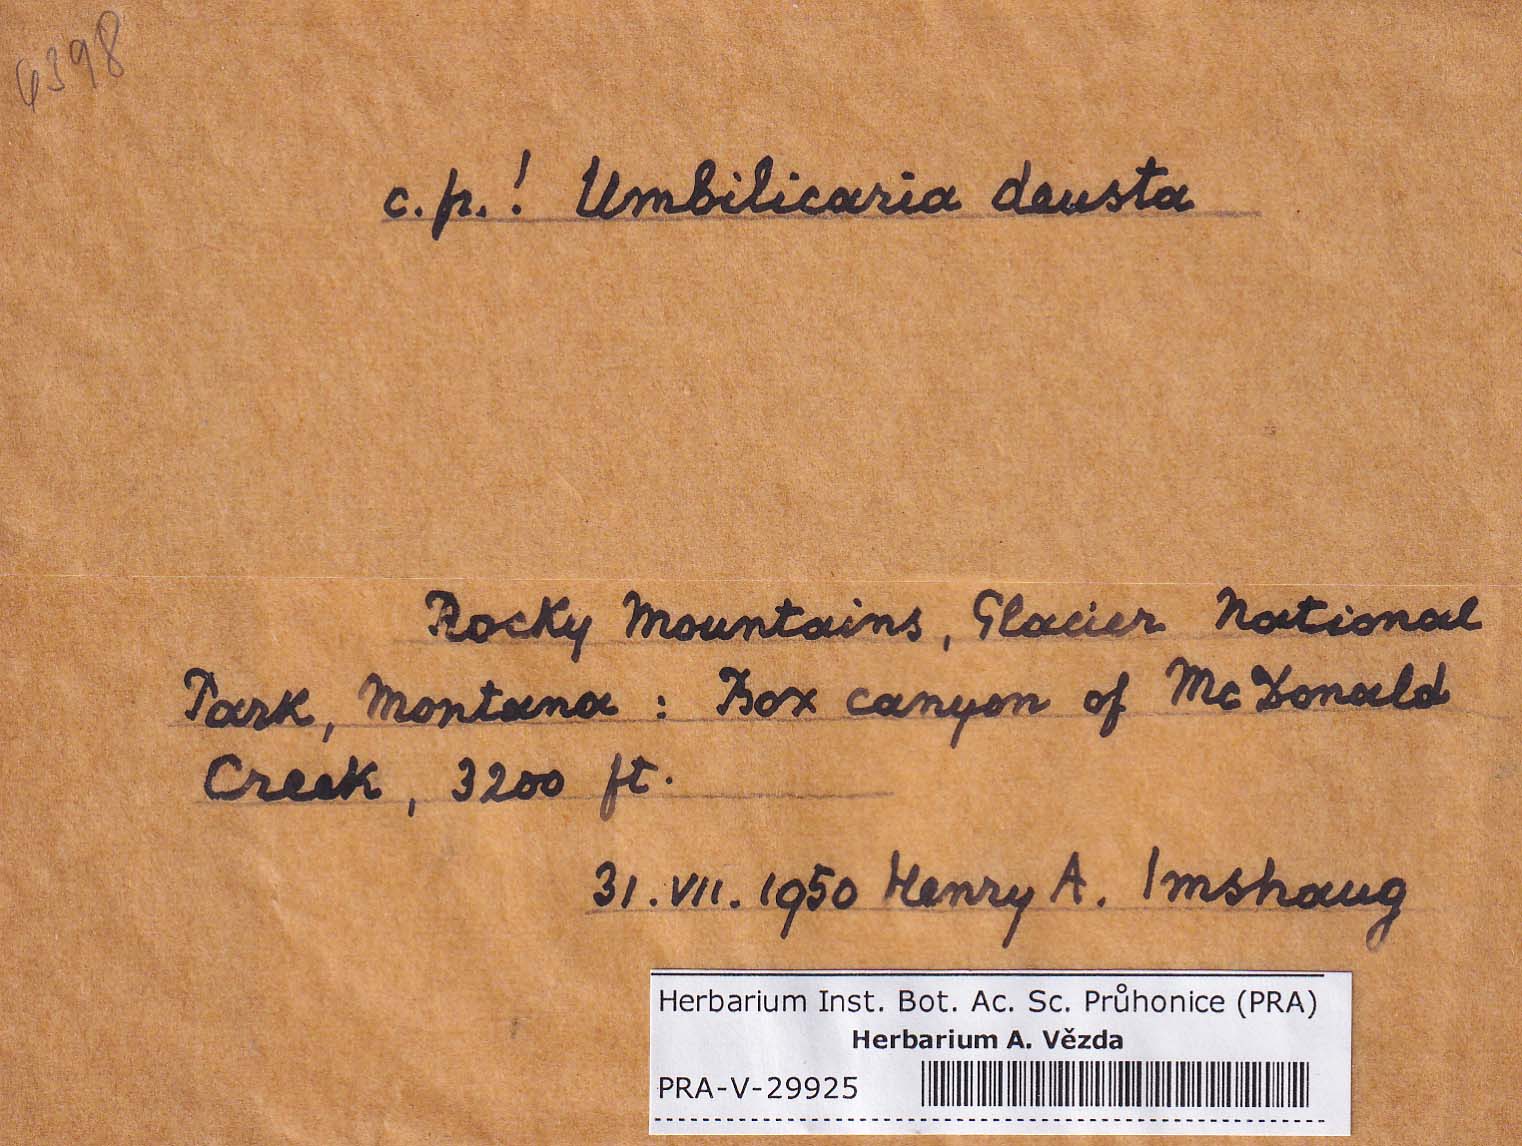 6398
c.p.! Umbilicaria deusta
Rocky Mountains, Glacier National
Park, Montana : Box canyon of McDonald
Creek, 3200 ft.
31.VII.1950 Henry A. Imshaug
Herbarium Inst. Bot. Ac. Sc. Průhonice (PRA)
Herbarium A. Vězda
PRA-V-29925